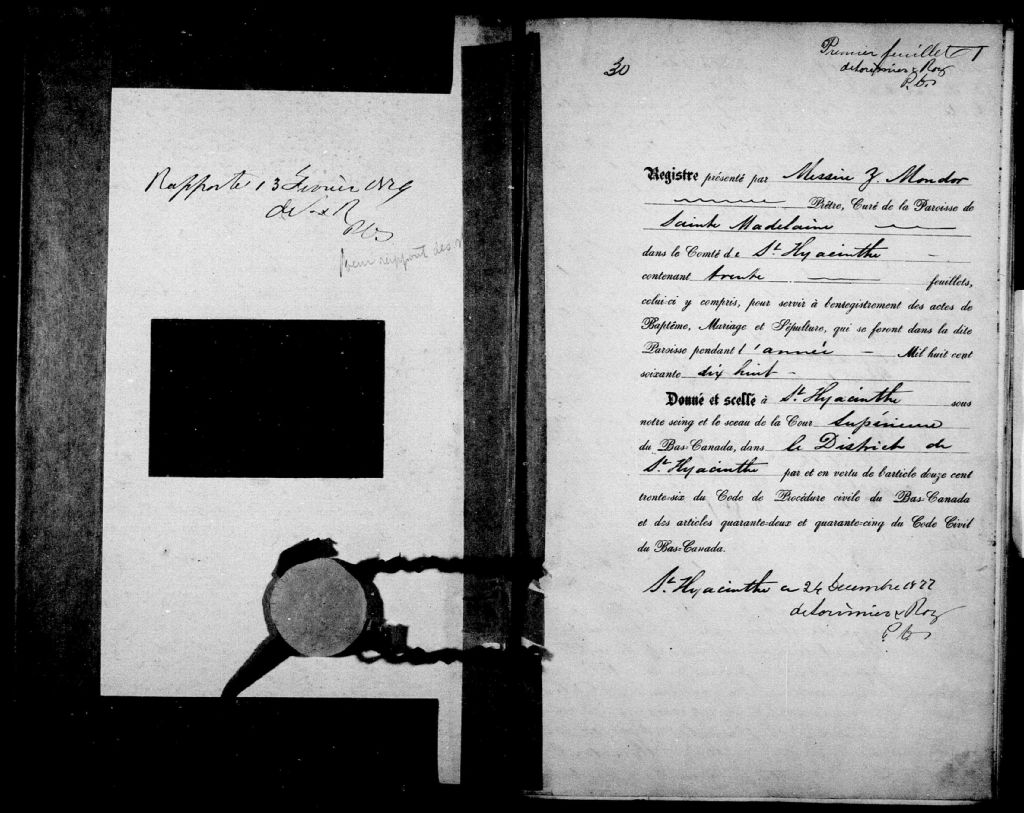 Rapporté 13 Février 1879
deL. & R
P.C.S.
30
Premier feuillet
deLorimier & Roy
P.C.S.
Registre présenté par Messire Z. Mondor
Prêtre, Curé de la Paroisse de
Sainte Madelaine
dans le Comté de St. Hyacinthe
contenant trente feuillets,
celui-ci y compris, pour servir à l'enregistrement des actes de
Baptême, Mariage et Sépulture, qui se feront dans la dite
Paroisse pendant l'année Mil huit cent
soixante dix huit
Donné et scellé à St. Hyacinthe sous
notre seing et le sceau de la Cour Supérieure
du Bas-Canada, dans le District de
St. Hyacinthe par et en vertu de l'article douze cent
trente-six du Code de Procédure civile du Bas-Canada
et des articles quarante-deux et quarante-cinq du Code Civil
du Bas-Canada.
St. Hyacinthe ce 24 Decembre 1877
deLorimier & Roy
P.C.S.